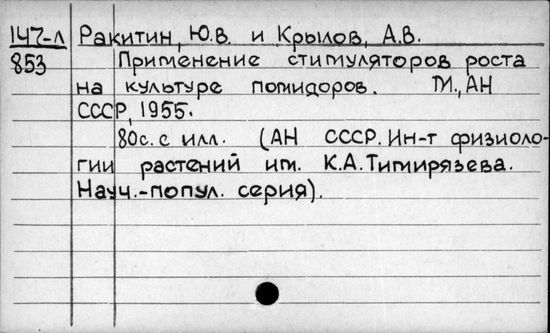 147-л Ракитин, Ю.В. и Крылов, А.В.
853 Применение стимуляторов роста
на культуре помидоров. М., АН
СССР, 1955.
80с. с илл. (АН СССР. Ин-т физиоло-
гии растений им. К.А.Тимирязева.
Науч.-попул. серия).